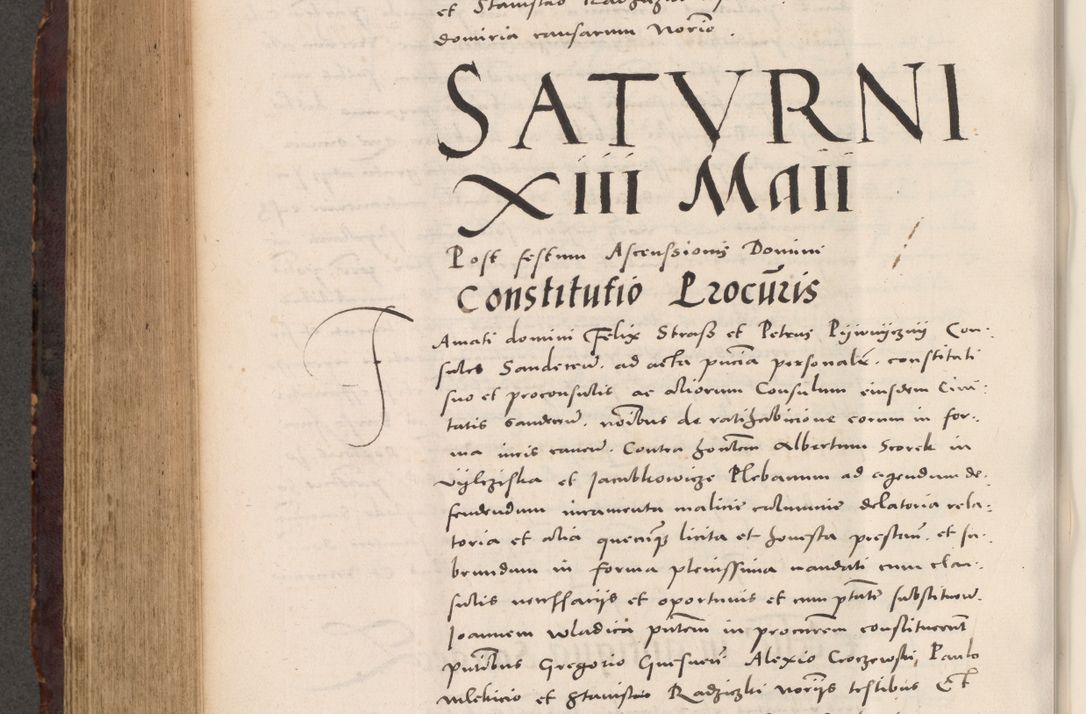 et Stanislao
dominia causarum norio.
SATVRNI
XIII MAII
Post festum Ascensionis Domini
Constitutio Procuris
Amati domini Felix Straß et Petrus Consules
sules Sandecen. ad acta pncia personalr. constituti
suo et proconsulis ac aliorum Consulum eiusdem Civi-
tatis Sandecen. noibus de ratihabicione eorum in for-
ma iuris caven. Contra hontem Albertum Scorek in
et Jacubkowicze Plebanum ad agendum de-
fendendum iuramenta malicie calumnie delatoria rela-
toria et alia quecumq licita et honesta prestan. et su-
beundum in forma plenissima mandati cum clau-
sulis necessarijs et oportunis et cum ptate substituen.
Joannem wladica pntem in procurem constituerunt
pntibus Gregorio Alexio Croczowski, Paulo
et Stanislao Radziczki norijs testibus Et